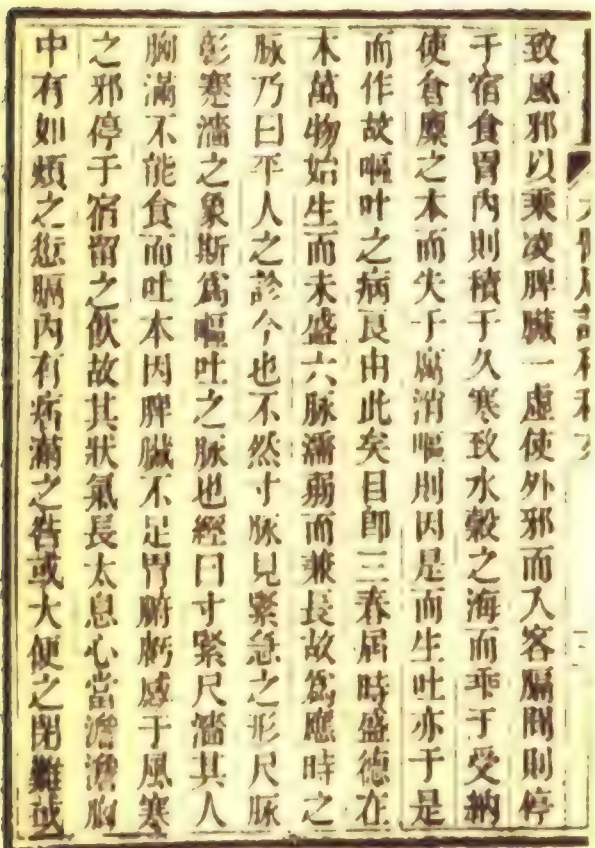 致風邪以乘凌脾臟一虛使外邪而入客膈間則停
于宿食胃內則積于久寒致水穀之海而乖于受納
使倉廩之本而失于𢊍消嘔則因是而生吐亦于是
而作故嘔吐之病良由此矣目卽三春屆時盛德在
木萬物始生而未盛六脉濡弱而兼長故爲應時之
脉乃曰平人之診今也不然寸脉見緊急之形尺脉
彰蹇濇之象斯爲嘔吐之脉也經曰寸緊尺濇其人
胸滿不能食而吐本因脾臟不足胃腑虧感于風寒
之邪停于宿留之飲故其狀氣長太息心當澹澹胸
中有如煩之愆膈內有痞滿之咎或大便之閉難或